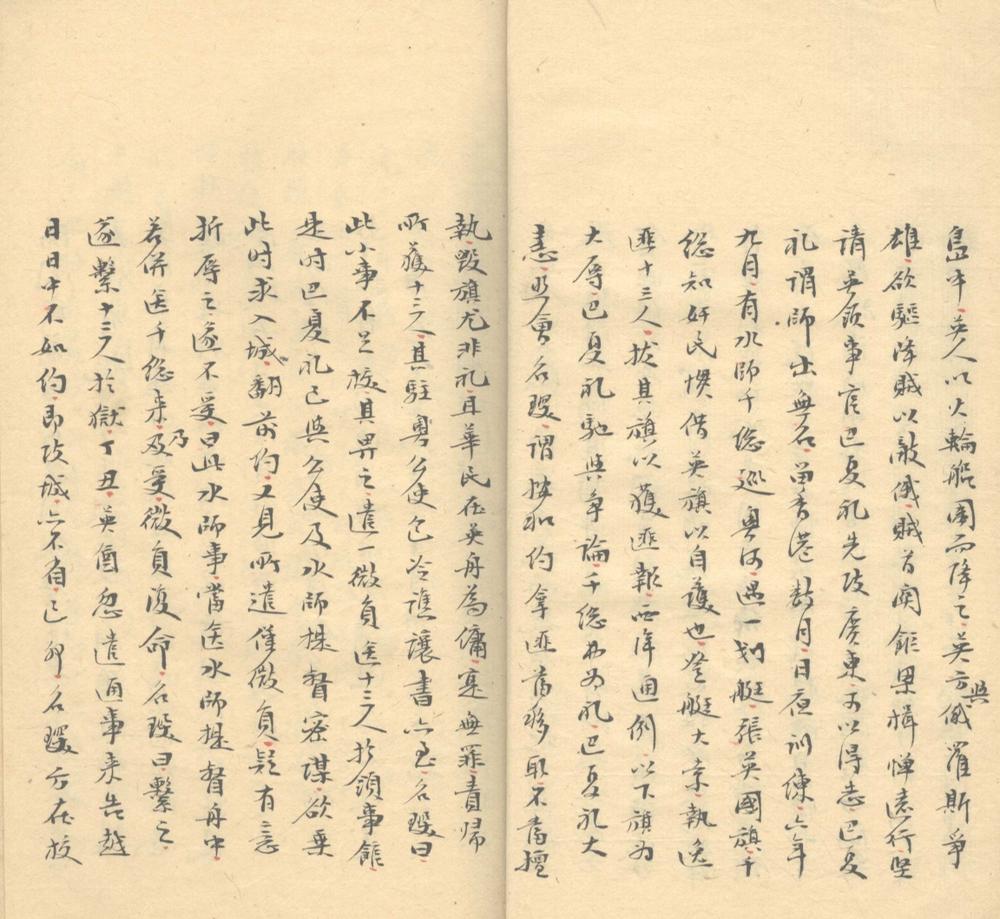 島中英人以火輪船圍而降之英方與俄羅斯爭
雄欲驅降賊以敵俄賊首関鉅梁楫憚遠行堅
請英領事官巴夏礼先攻廣東可以得志巴夏
礼謂師出無名留香港數月日夜訓練六年
九月有水師千總巡粵河遇一划艇張英國旗千
總知奸民慣借英旗以自護也登艇大索執逸
匪十三人拔其旗以獲匪報西洋通例以下旗為
大辱巴夏礼馳與爭論千總不為礼巴夏礼大
恚照會名琛謂據和約拿匪舊移取不舊擅
執毀旗尤非礼且華民在英舟為傭寔無罪責歸
所獲十三人其駐粵公使包冷譙讓書亦至名琛曰
此小事不足校其畀之遣一微員送十三人於領事館
是时巴夏礼已與公使及水師提督密谋欲乘
此时求入城翻前约又見所遣僅微員疑有意
折辱之遂不受曰此水師事當送水師提督舟中
若併送千總来乃及受微員復命名琛曰繫之
遂繫十三人於獄丁丑英酋忽遣通事来告越
日日中不如约即攻城亦不省己卯名琛方在校